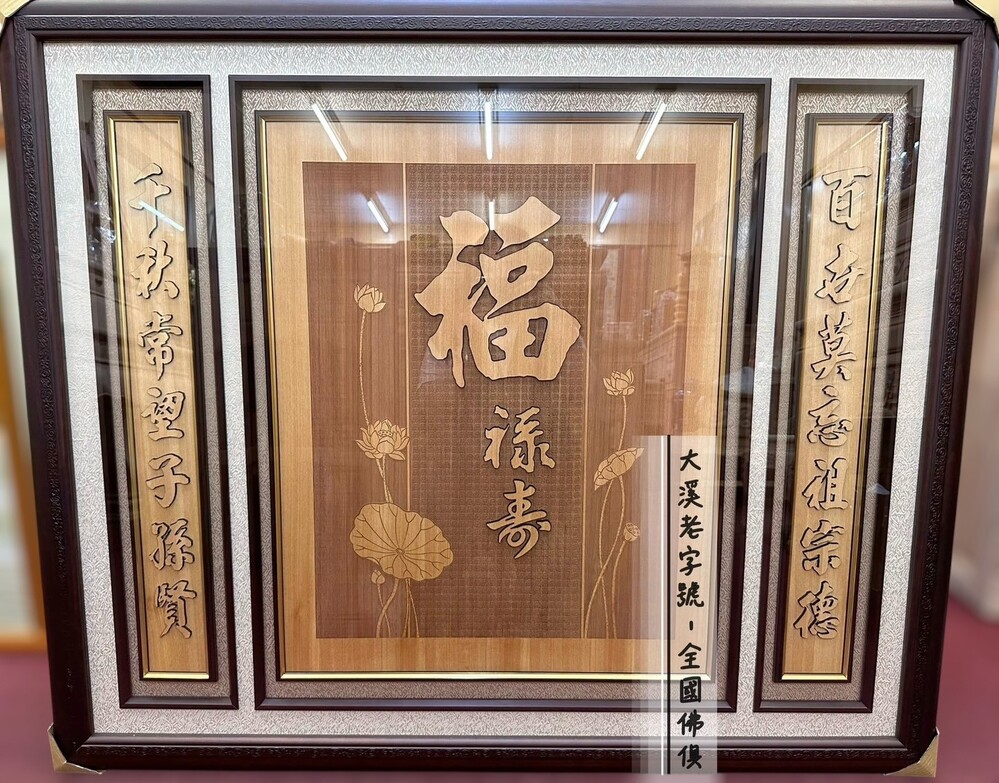 百世莫忘祖宗德
福
禄
寿
千秋常望子孫賢
大溪老字號-全國佛俱